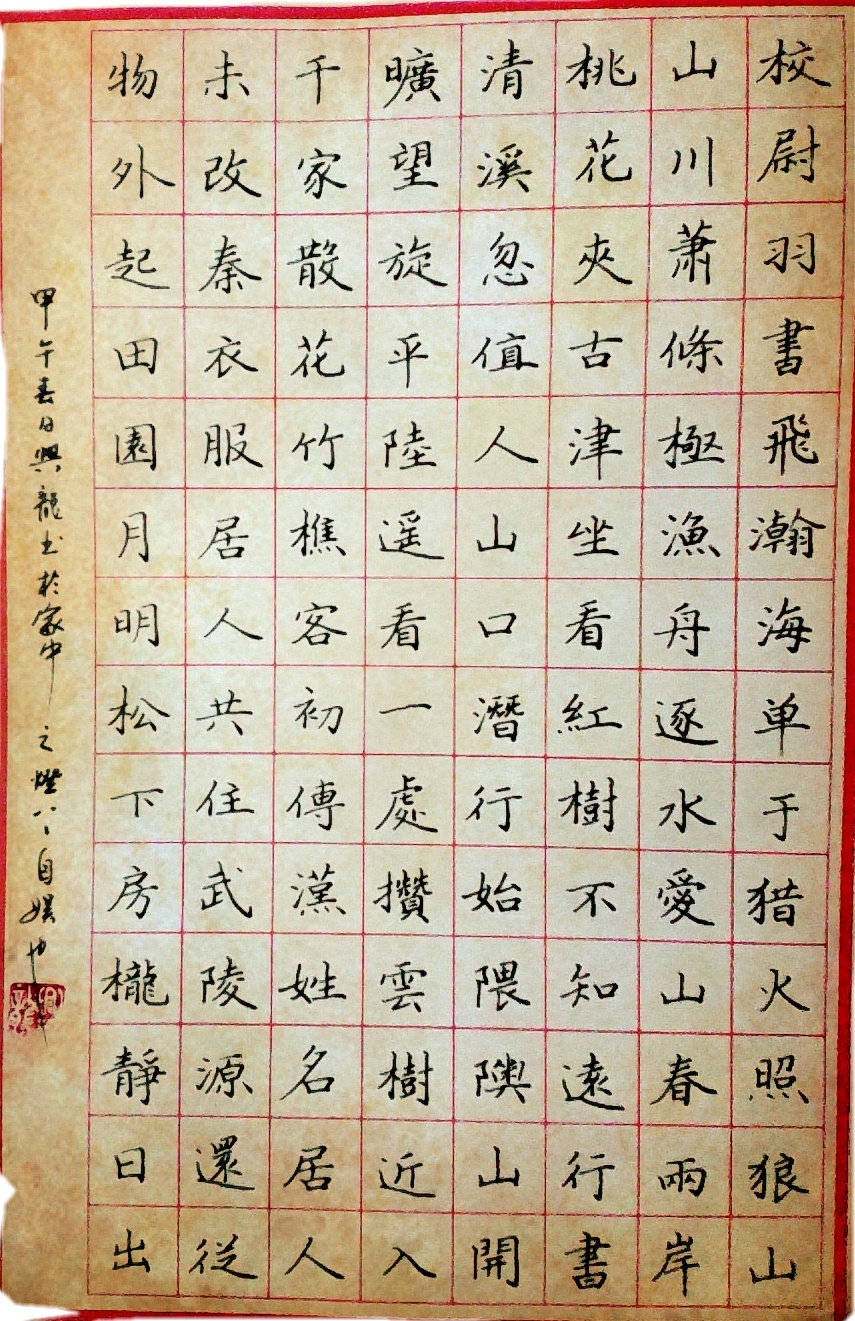 校尉羽書飛瀚海单于猎火照狼山
山川蕭條極漁舟逐水愛山春兩岸
桃花夾古津坐看紅樹不知遠行書
清溪忽值人山口潛行始隈隩山開
曠望旋平陸遥看一處攢雲樹近入
千家散花竹樵客初傳漢姓名居人
未改秦衣服居人共住武陵源還從
物外起田園月明松下房櫳靜日出
甲午春日興龍书於家中之燈自娱